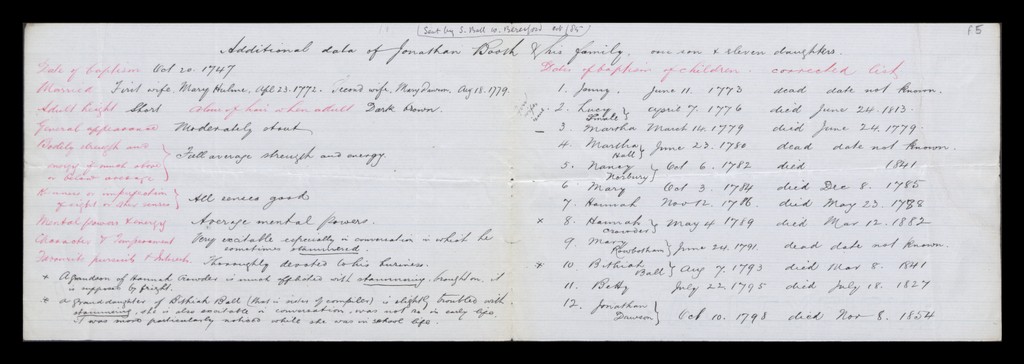 (Sent by S. Ball to Beresford Oct /85)
f 5
Additional data of Jonathan Booth & his family. one son & eleven daughters.
Date of baptism Oct 20. 1747
Married First wife, Mary Hulme, Apl 23. 1772. Second wife, Mary Dawson, Aug 18. 1779.
Adult height Short Colour of hair when adult Dark Brown.
General appearance Moderately stout
Bodily strength and energy, & much above or below average } Full average strength and energy.
Keenness or imperfection of sight or other senses } All senses good
Mental powers & energy Average mental powers.
Character & Temperament Very excitable especially in conversation in which he
sometimes stammered.
Favourite pursuits & interests Thoroughly devoted to his business.
* A grandson of Hannah Crowder is much afflicted with stammering, brought on, it
is supposed by fright.
* A granddaughter of Bethiah Ball (that is sister of compiler) is slightly troubled with
stammering, she is also excitable in conversation, was not so in early life.
It was more particularly noticed while she was in school life.
Dates of baptism of children. corrected list
1. Jenny. June 11. 1773 dead date not known.
2. Lucy } April 7. 1776 died June 24. 1813.
3. Martha March 14. 1779 died June 24. 1779.
4. Martha Hall } June 23. 1780 dead date not known.
5. Nancy Norbury } Oct 6. 1782 died 1841
6. Mary Oct 3. 1784 died Dec 8. 1785
7. Hannah Nov 12. 1786 died May 23. 1788
* 8. Hannah Crowder } May 4 1789 died Mar 12. 1882
9. Mary Rowbotham } June 24. 1791. dead date not known.
* 10. Bethiah Ball } Aug 7. 1793 died Mar 8. 1841
11. Betty July 22. 1795 died July 18. 1827
12. Jonathan Dawson } Oct 10. 1798 died Nov 8. 1854